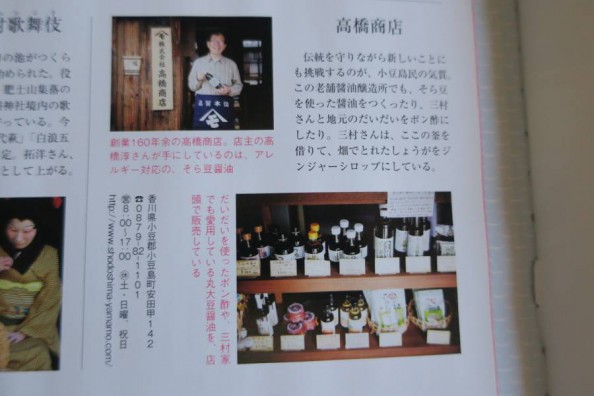 高橋商店
伝統を守りながら新しいことに
も挑戦するのが、小豆島民の気質。
この老舗醤油醸造所でも、そら豆
を使った醤油をつくったり、三村
さんと地元のだいだいをポン酢に
したり。三村さんは、ここの釜を
借りて、畑でとれたしょうがをジ
ンジャーシロップにしている。
株式会社
高橋商店
創業160年余の高橋商店。店主の高
橋淳さんが手にしているのは、アレ
ルギー対応の、そら豆醤油
だいだいを使ったポン酢や、三村家
でも愛用している丸大豆醤油を、店
頭で販売している
香川県小豆郡小豆島町安田甲142
☎0879-82-1101
営8:00〜17:00 休土・日曜、祝日
http://www.shodoshima-yamamo.com/
村歌舞伎
の池がつくら
められた。役
肥土山集落の
神社境内の歌
っている。今
「白浪五
定。拓洋さん、
として上がる。